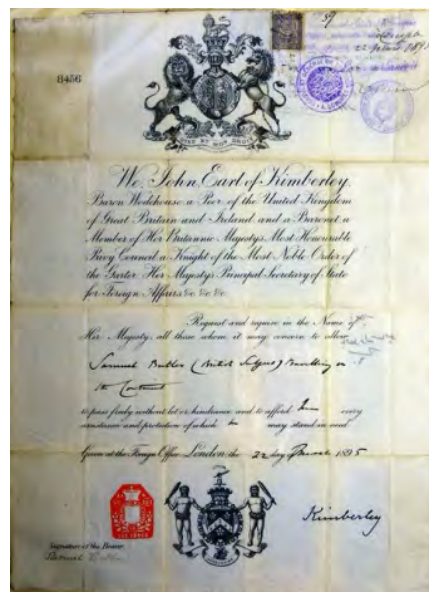 8456
DIEU ET MON DROIT
We, John, Earl of Kimberley,
Baron Wodehouse, a Peer of the United Kingdom
of Great Britain and Ireland, and a Baronet, a
Member of Her Britannic Majesty's Most Honourable
Privy Council, a Knight of the Most Noble Order of
the Garter, Her Majesty's Principal Secretary of State
for Foreign Affairs &c. &c. &c.
Request and require in the Name of
Her Majesty, all those whom it may concern to allow
Samuel Butler (British Subject) travelling on
the Continent
to pass freely without let or hindrance and to afford him every
assistance and protection of which he may stand in need.
Given at the Foreign Office, London, the 22 day of March 1895
Kimberley
Signature of the Bearer.
Samuel Butler